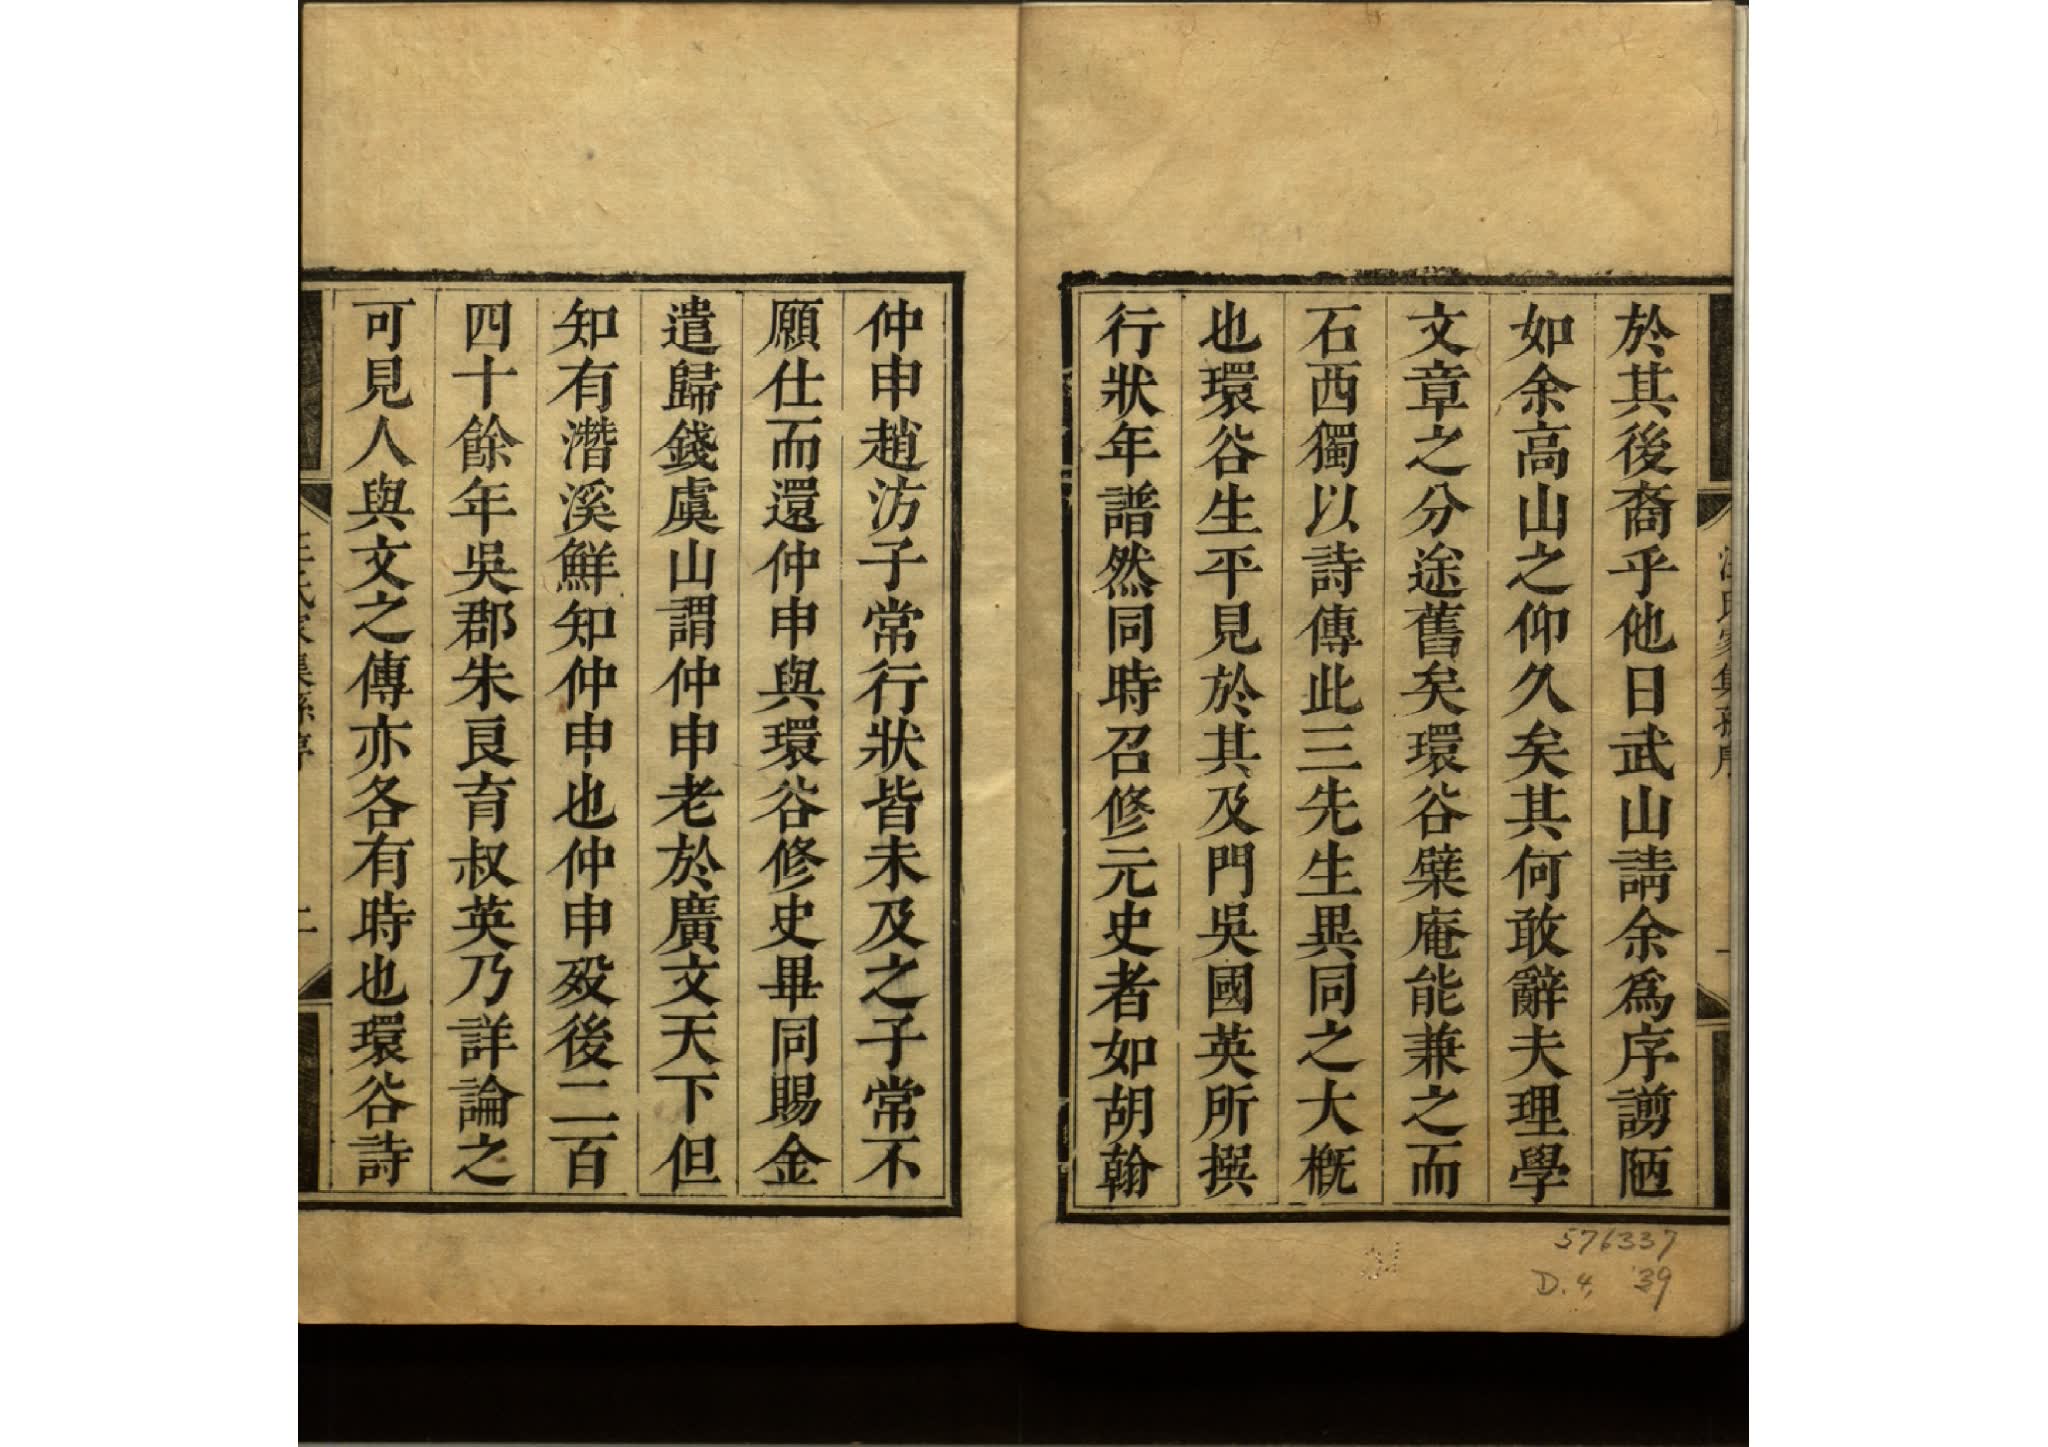 於其後裔乎他日武山請余爲序謭陋
如余高山之仰久矣其何敢辭夫理學
文章之分途舊矣環谷檗庵能兼之而
石西獨以詩傳此三先生異同之大槪
也環谷生平見於其及門吳國英所撰
行狀年譜然同時召修元史者如胡翰
仲申趙汸子常行狀皆未及之子常不
願仕而還仲申與環谷修史畢同賜金
遣歸錢虞山謂仲申老於廣文天下但
知有潛溪鮮知仲申也仲申歿後二百
四十餘年吳郡朱良育叔英乃詳論之
可見人與文之傳亦各有時也環谷詩
汪氏家集孫序
一
汪氏家集孫序
二
576337
D.4, '39